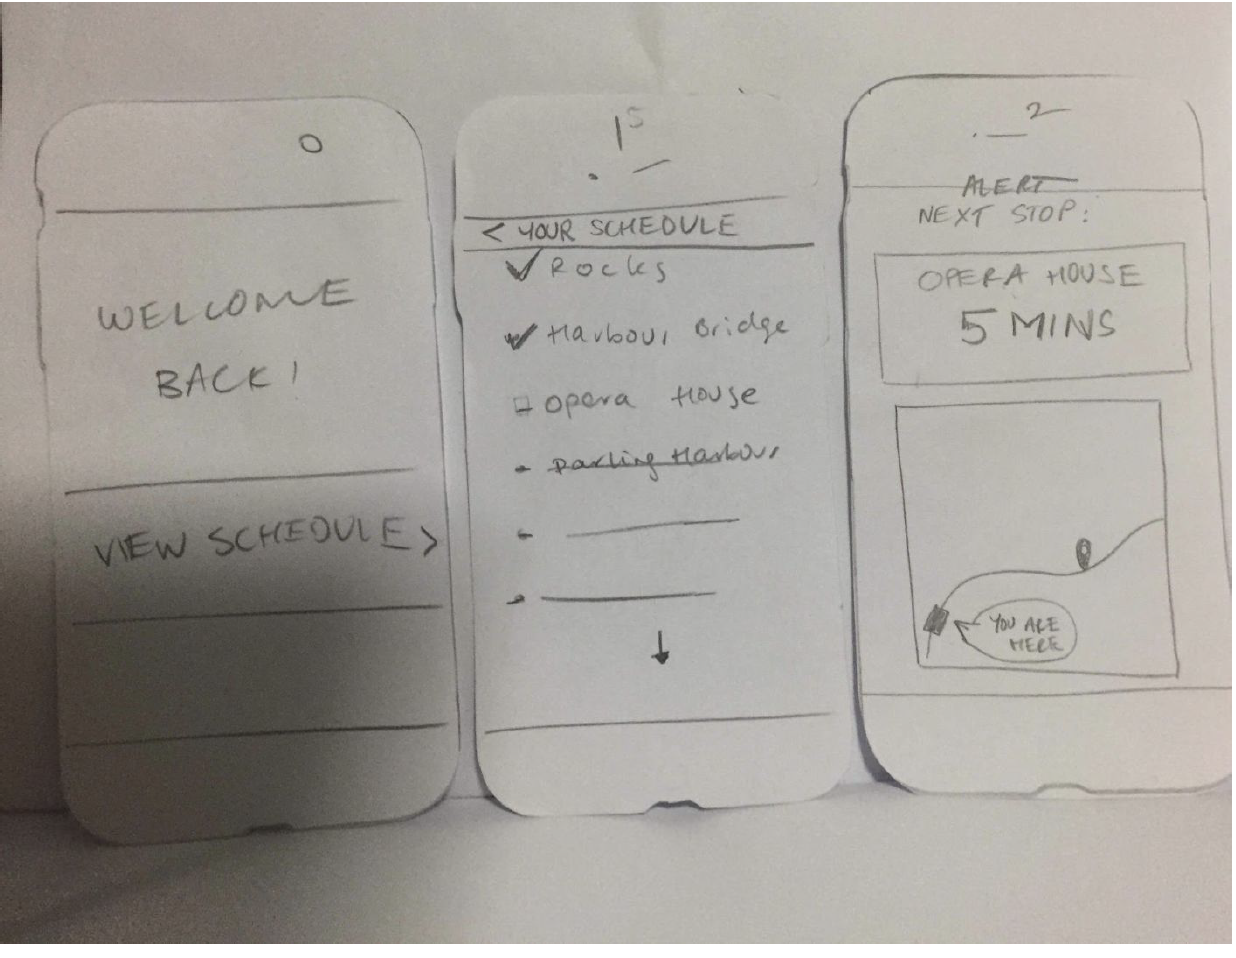 0
WELCOME
BACK!
VIEW SCHEDULE >
1 5
< YOUR SCHEDULE
Rocks
Harbour Bridge
Opera House
Darling Harbour
2
ALERT
NEXT STOP:
OPERA HOUSE
5 MINS
YOU ARE
HERE